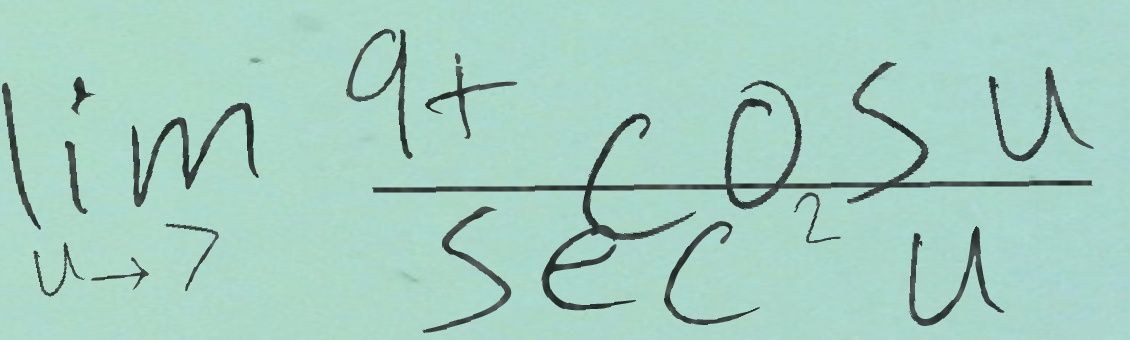 lim u→7 9+ cos u / sec² u